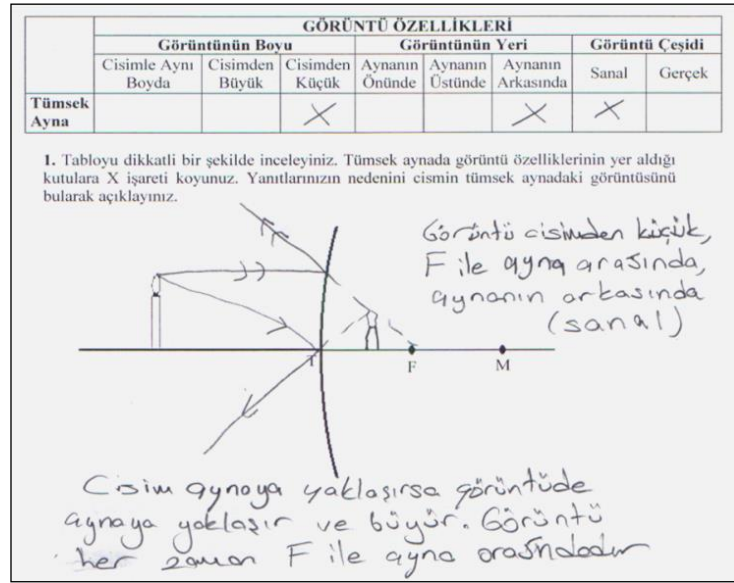 GÖRÜNTÜ ÖZELLİKLERİ
Görüntünün Boyu Görüntünün Yeri Görüntü Çeşidi
Cisimle Aynı Boyda Cisimden Büyük Cisimden Küçük Aynanın Önünde Aynanın Üstünde Aynanın Arkasında Sanal Gerçek
Tümsek Ayna X X X
1. Tabloyu dikkatli bir şekilde inceleyiniz. Tümsek aynada görüntü özelliklerinin yer aldığı
kutulara X işareti koyunuz. Yanıtlarınızın nedenini cismin tümsek aynadaki görüntüsünü
bularak açıklayınız.
Görüntü cisimden küçük,
F ile ayna arasında,
aynanın arkasında
(sanal)
T F M
Cisim aynaya yaklaşırsa görüntüde
aynaya yaklaşır ve büyür. Görüntü
her zaman F ile ayna arasındadır